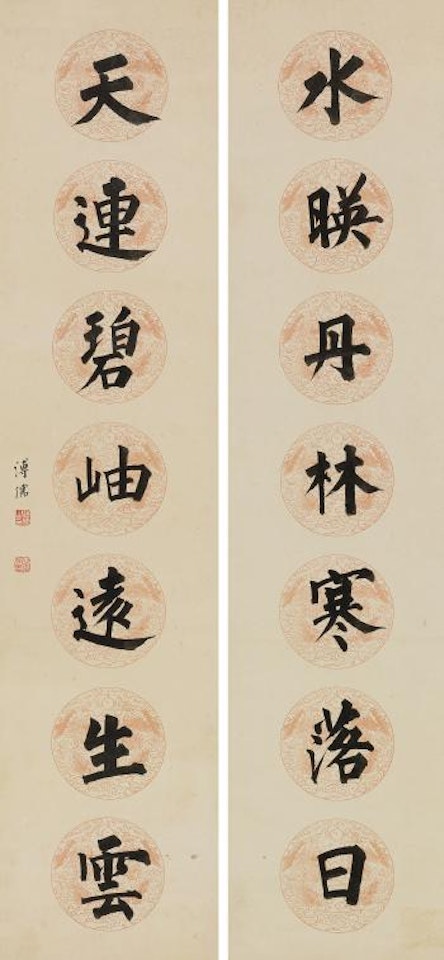 水暎丹林寒落日
天連碧岫遠生雲
溥儒